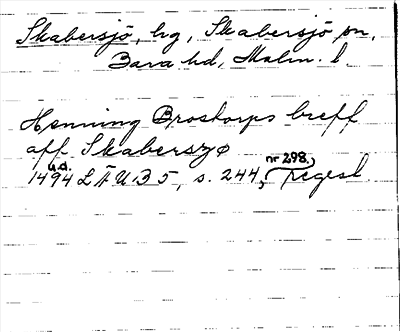 Skabersjö, hg, Skabersjö sn,
Bara hd, Malm. l.
Henning Brostorps breff
aff Skaberszø
u.d. nr 298,
1494 LÄUB 5, s. 244, regest